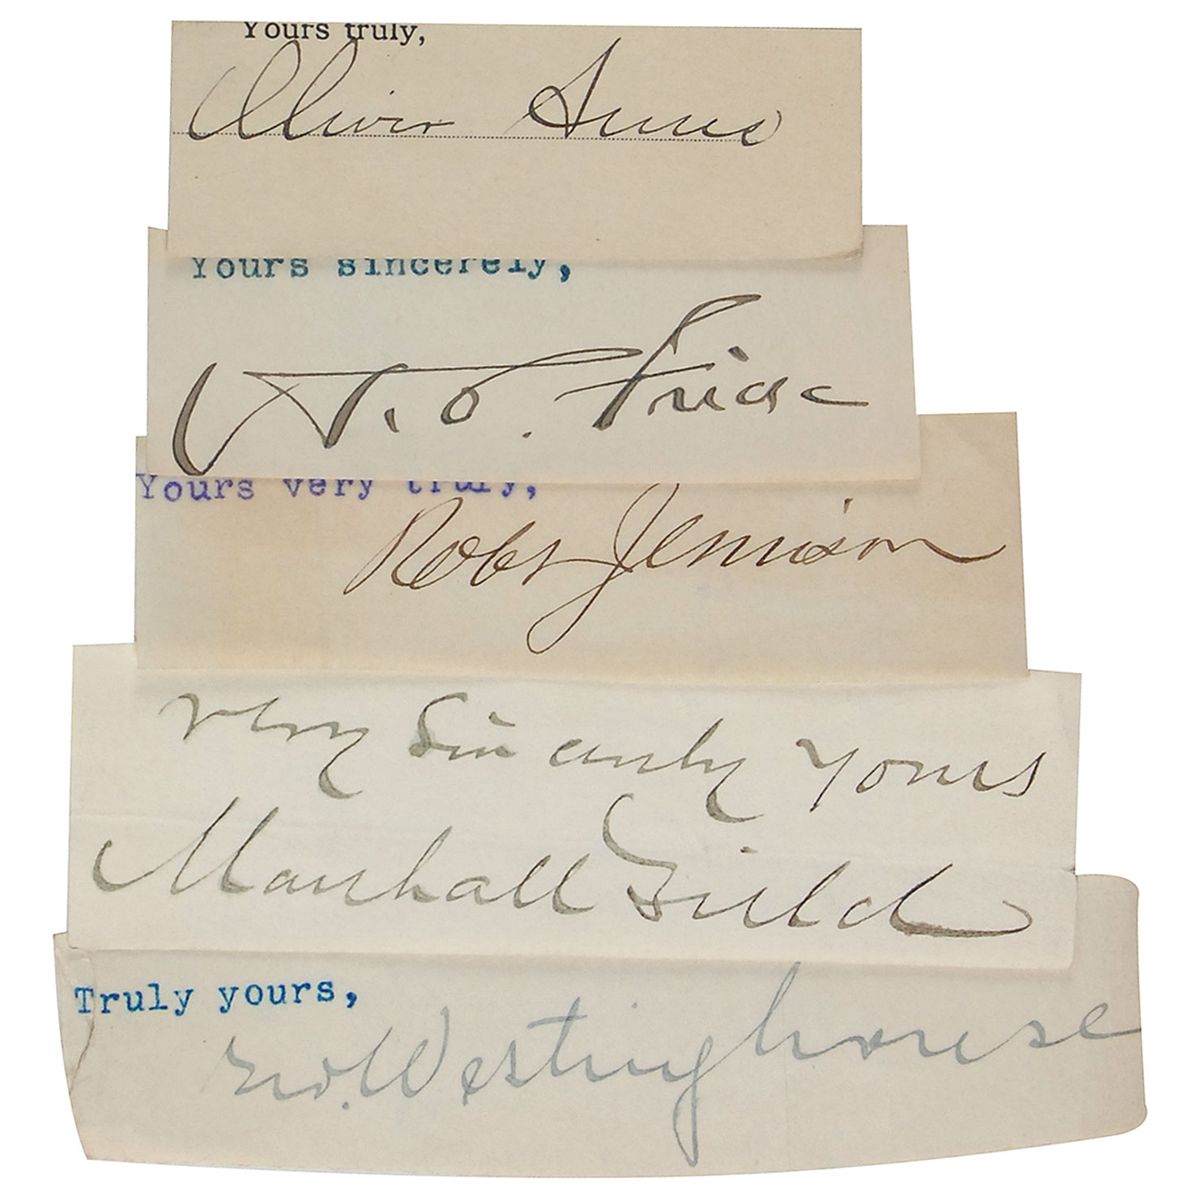 Yours truly,
Oliver Ames
Yours sincerely,
H. C. Frick
Yours very truly,
Robt Jemison
Very Sincerely Yours
Marshall Field
Truly yours,
Geo. Westinghouse